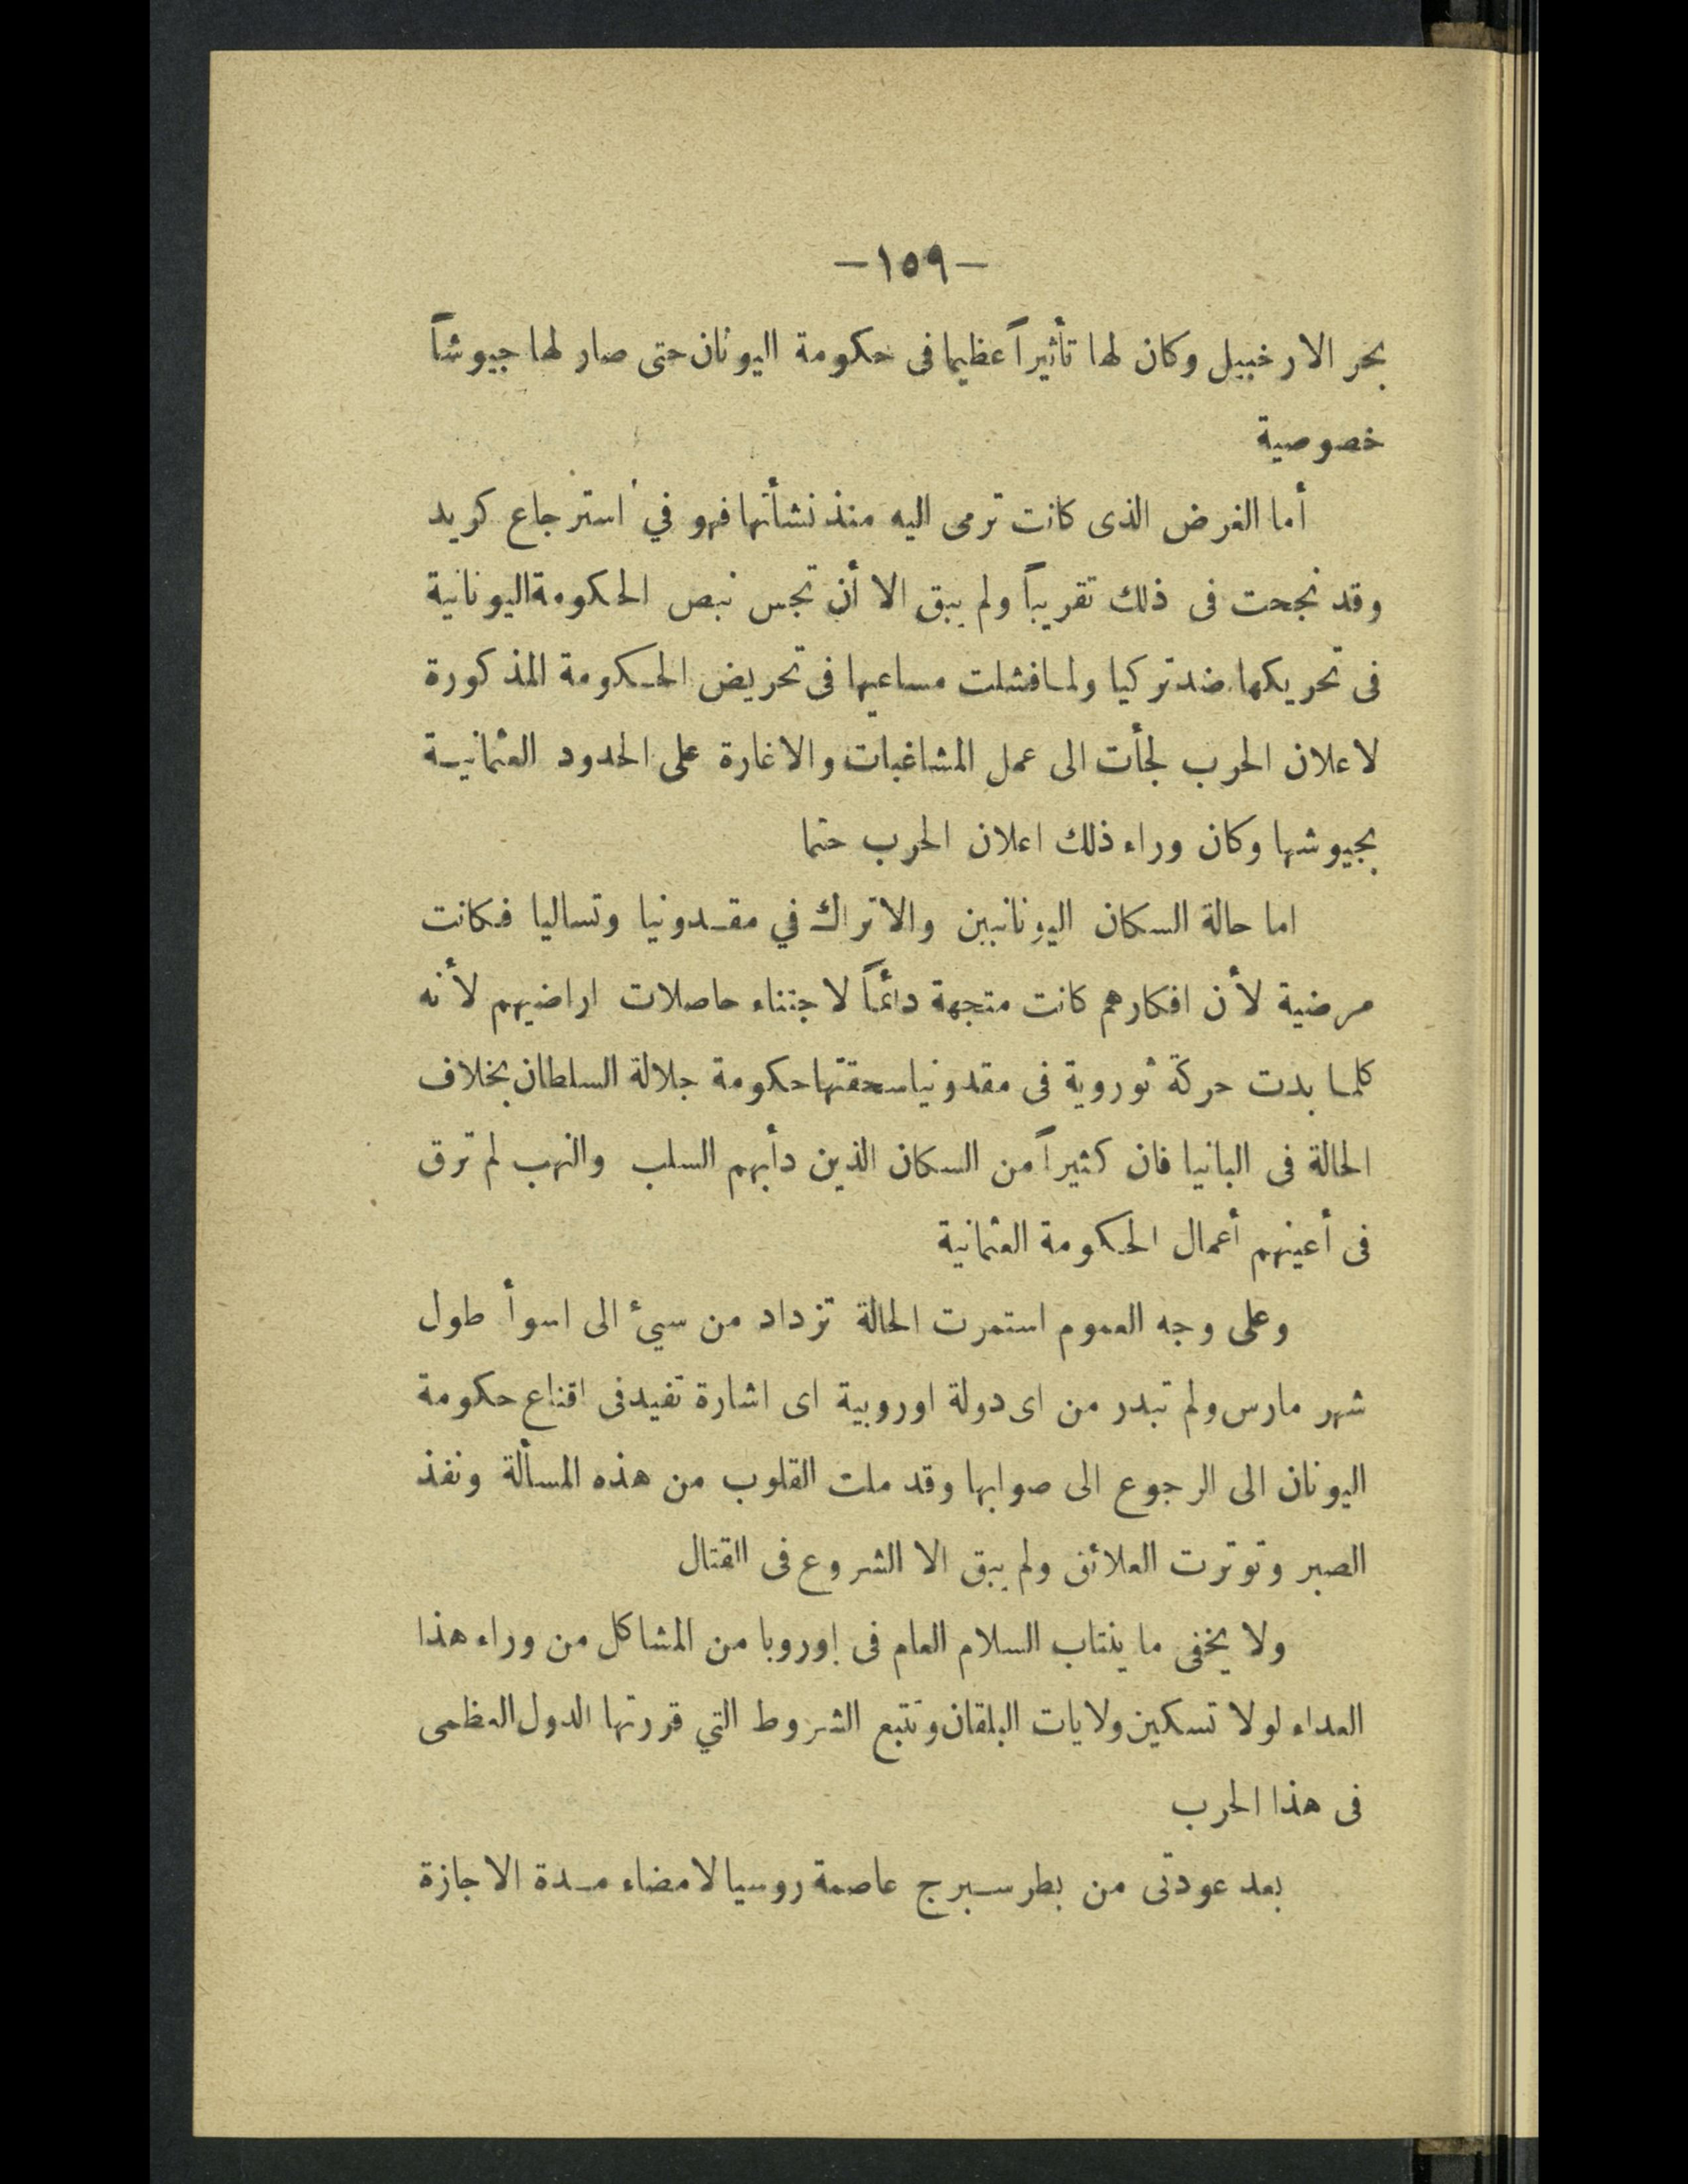 —١٥٩—
بحر الارخبيل وكان لها تأثيراً عظيما فى حكومة اليونان حتى صار لها جيوشاً
خصوصية
أما الغرض الذى كانت ترمى اليه منذ نشأتها فهو في استرجاع كريد
وقد نجحت فى ذلك تقريباً ولم يبق الا أن تجس نبص الحكومة اليونانية
فى تحريكها ضد تركيا ولما فشلت مساعيها فى تحريض الحكومة المذكورة
لاعلان الحرب لجأت الى عمل المشاغبات والاغارة على الحدود العثمانية
بجيوشها وكان وراء ذلك اعلان الحرب حتما
اما حالة السكان اليونانيين والاتراك في مقدونيا وتساليا فكانت
مرضية لأن افكارهم كانت متجهة دائماً لاجتناء حاصلات اراضيهم لأنه
كلما بدت حركة ثوروية فى مقدونيا سحقتها حكومة جلالة السلطان بخلاف
الحالة فى البانيا فان كثيراً من السكان الذين دأبهم السلب والنهب لم ترق
فى أعينهم أعمال الحكومة العثمانية
وعلى وجه العموم استمرت الحالة تزداد من سيئ الى اسوأ طول
شهر مارس ولم تبدر من اى دولة اوروبية اى اشارة تفيد فى اقناع حكومة
اليونان الى الرجوع الى صوابها وقد ملت القلوب من هذه المسألة ونفذ
الصبر وتوترت العلائق ولم يبق الا الشروع فى القتال
ولا يخفى ما ينتاب السلام العام فى اوروبا من المشاكل من وراء هذا
العداء لولا تسكين ولايات البلقان وتتبع الشروط التي قررتها الدول العظمى
فى هذا الحرب
بعد عودتى من بطرسبرج عاصمة روسيا لامضاء مدة الاجازة